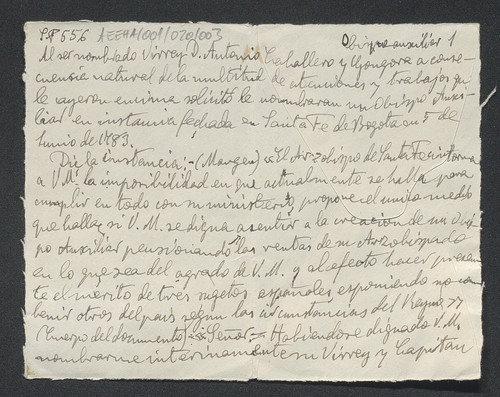 SP 556 AEEHA/001/020/003
Obispo auxiliar 1
Al ser nombrado Virrey D. Antonio Caballero y Gongora a conse-
cuencia natural de la multitud de atenciones y trabajos que
le cayeron encima solicitó le nombraran un Obispo Auxi-
liar en instancia fechada en Santa Fe de Bogota en 5 de
Junio de 1783.
Dice la instancia: - (Margen) « El Arzobispo de Santa Fe informa
a V.M. la imposibilidad en que actualmente se halla para
cumplir en todo con su ministerio, propone el unico medio
que halla, si V. M. se digna asentir a la creacion de un Obis-
po Auxiliar pensionando las rentas de su Arzobispado
en lo que sea del agrado de V. M. y al efecto hacer presen-
te el mérito de tres sugetos españoles exponiendo no con-
benir otros del pais segun las circunstancias del Reyno »
Cuerpo del documento: « Señor: - Habiendose dignado V. M.
nombrarme interinamente su Virrey y Capitan